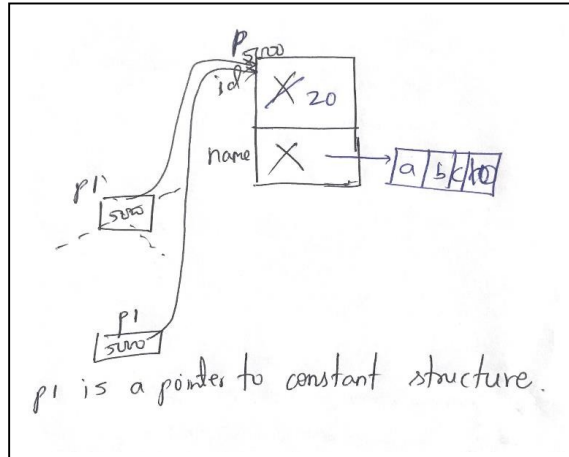 P
5000
id X 20
name X a b c \0
p1
5000
p1
5000
p1 is a pointer to constant structure.